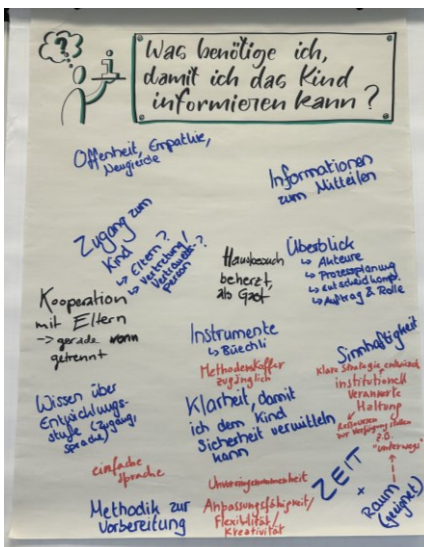 Was benötige ich,
damit ich das Kind
informieren kann?
Offenheit, Empathie,
Neugierde
Informationen
zum Mitteilen
Zugang zum
Kind
↳ Eltern?
↳ Vertretung/
Vertrauens-?
person
Hausbesuch
beherzt,
als Gast
Überblick
↳ Akteure
↳ Prozessplanung
↳ Entscheidkompl.
↳ Auftrag & Rolle
Kooperation
mit Eltern
-> gerade wenn
getrennt
Instrumente
↳ Büechli
Methodenkoffer
zugänglich
Sinnhaftigkeit
klare Strategie, entwickelt
institutionell
verankerte
Haltung
↳ Ressourcen
zur Verfügung stellen
z.B.
"unterwegs"
Wissen über
Entwicklungs-
stufe (Zugang,
Sprache)
einfache
Sprache
Klarheit, damit
ich dem Kind
Sicherheit vermitteln
kann
Unvoreingenommenheit
Anpassungsfähigkeit/
Flexibilität/
Kreativität
Methodik zur
Vorbereitung
ZEIT
+
Raum
(geeignet)